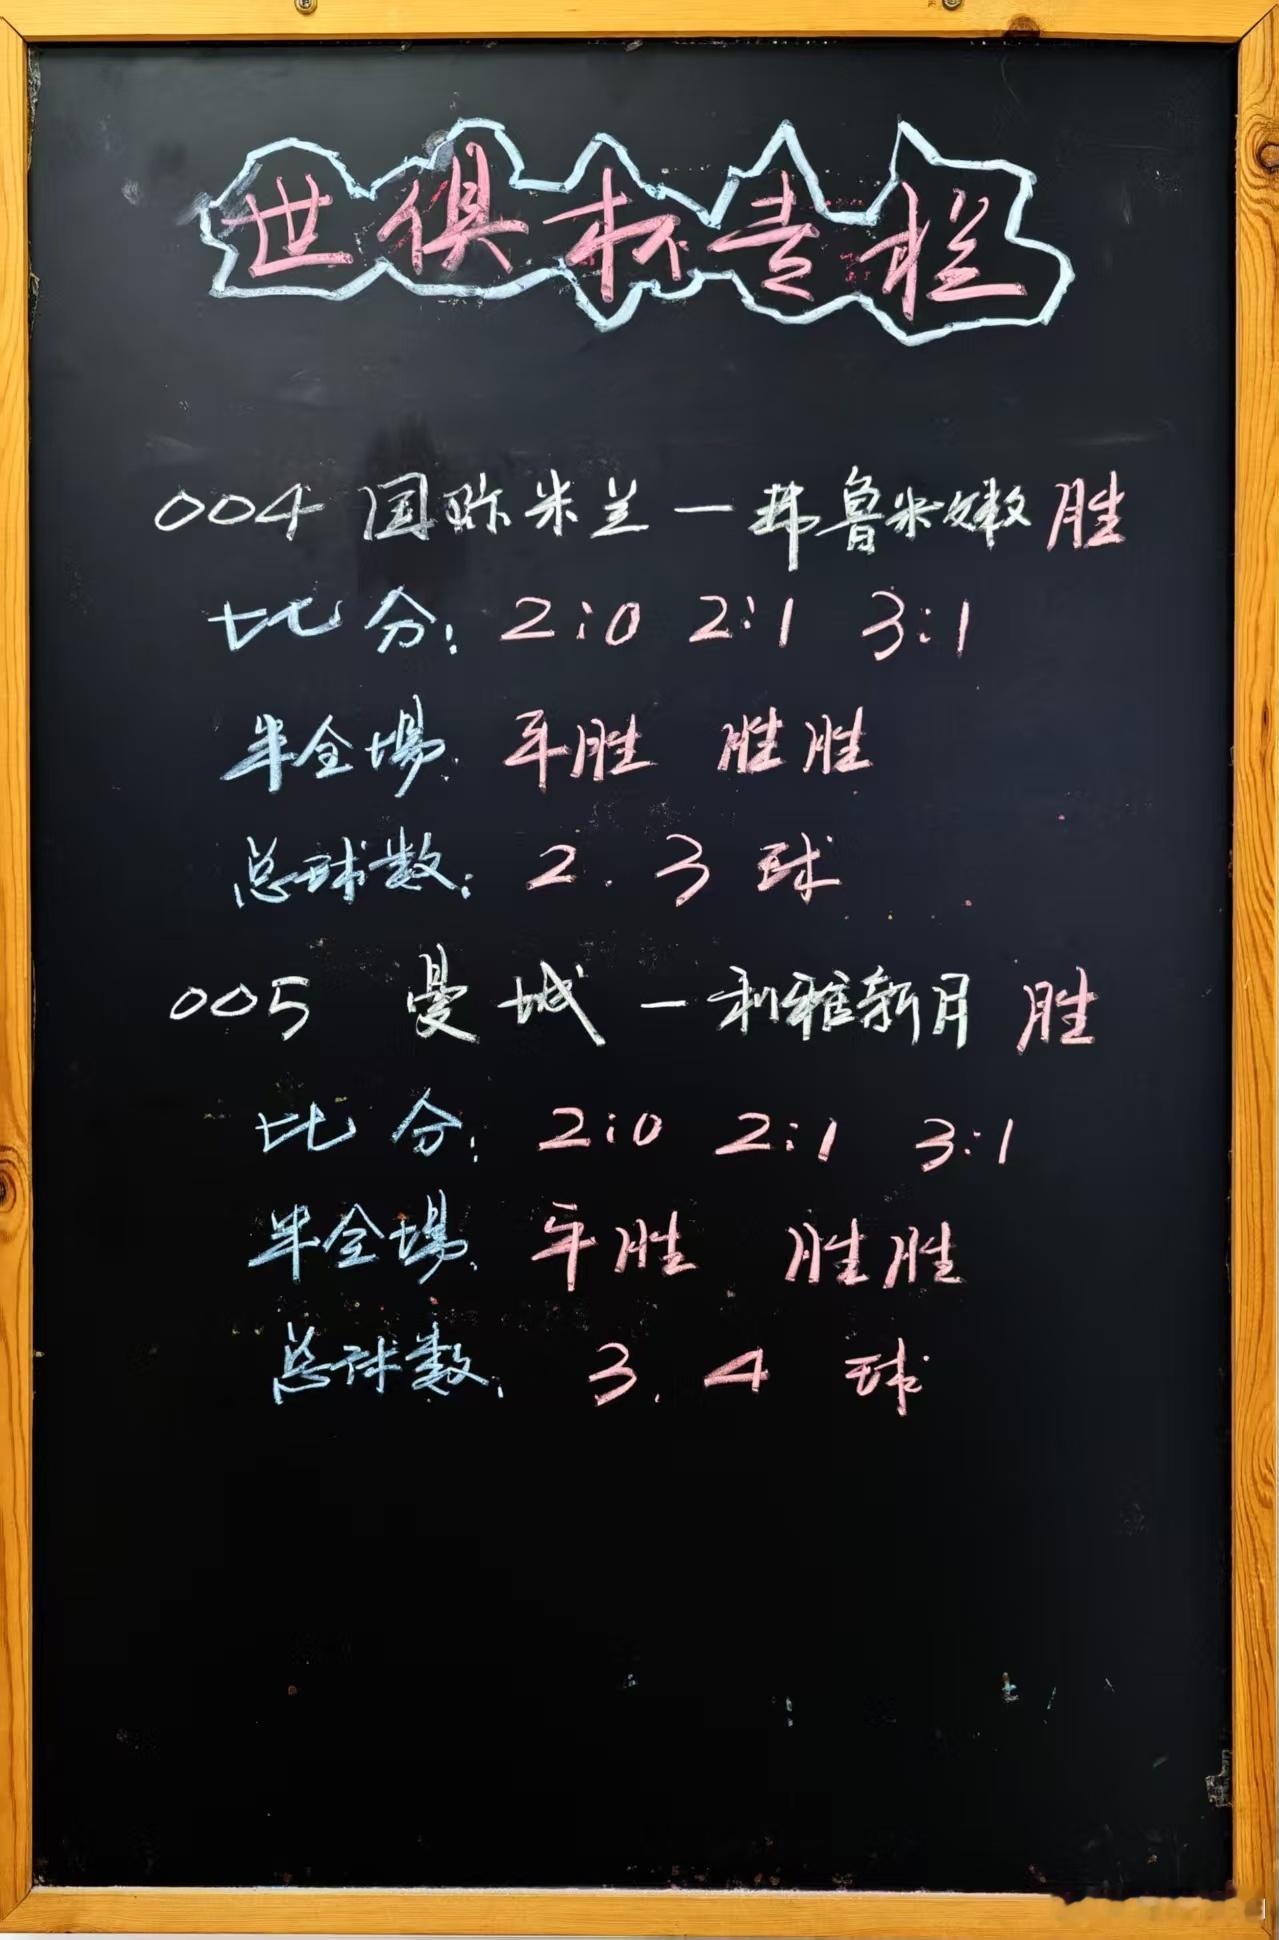 世俱杯专栏
004 国际米兰—弗鲁米嫩 胜
比分: 2:0 2:1 3:1
半全場: 平胜 胜胜
总球数: 2.3球
005 曼城—利雅新月 胜
比分: 2:0 2:1 3:1
半全場: 平胜 胜胜
总球数: 3.4 球